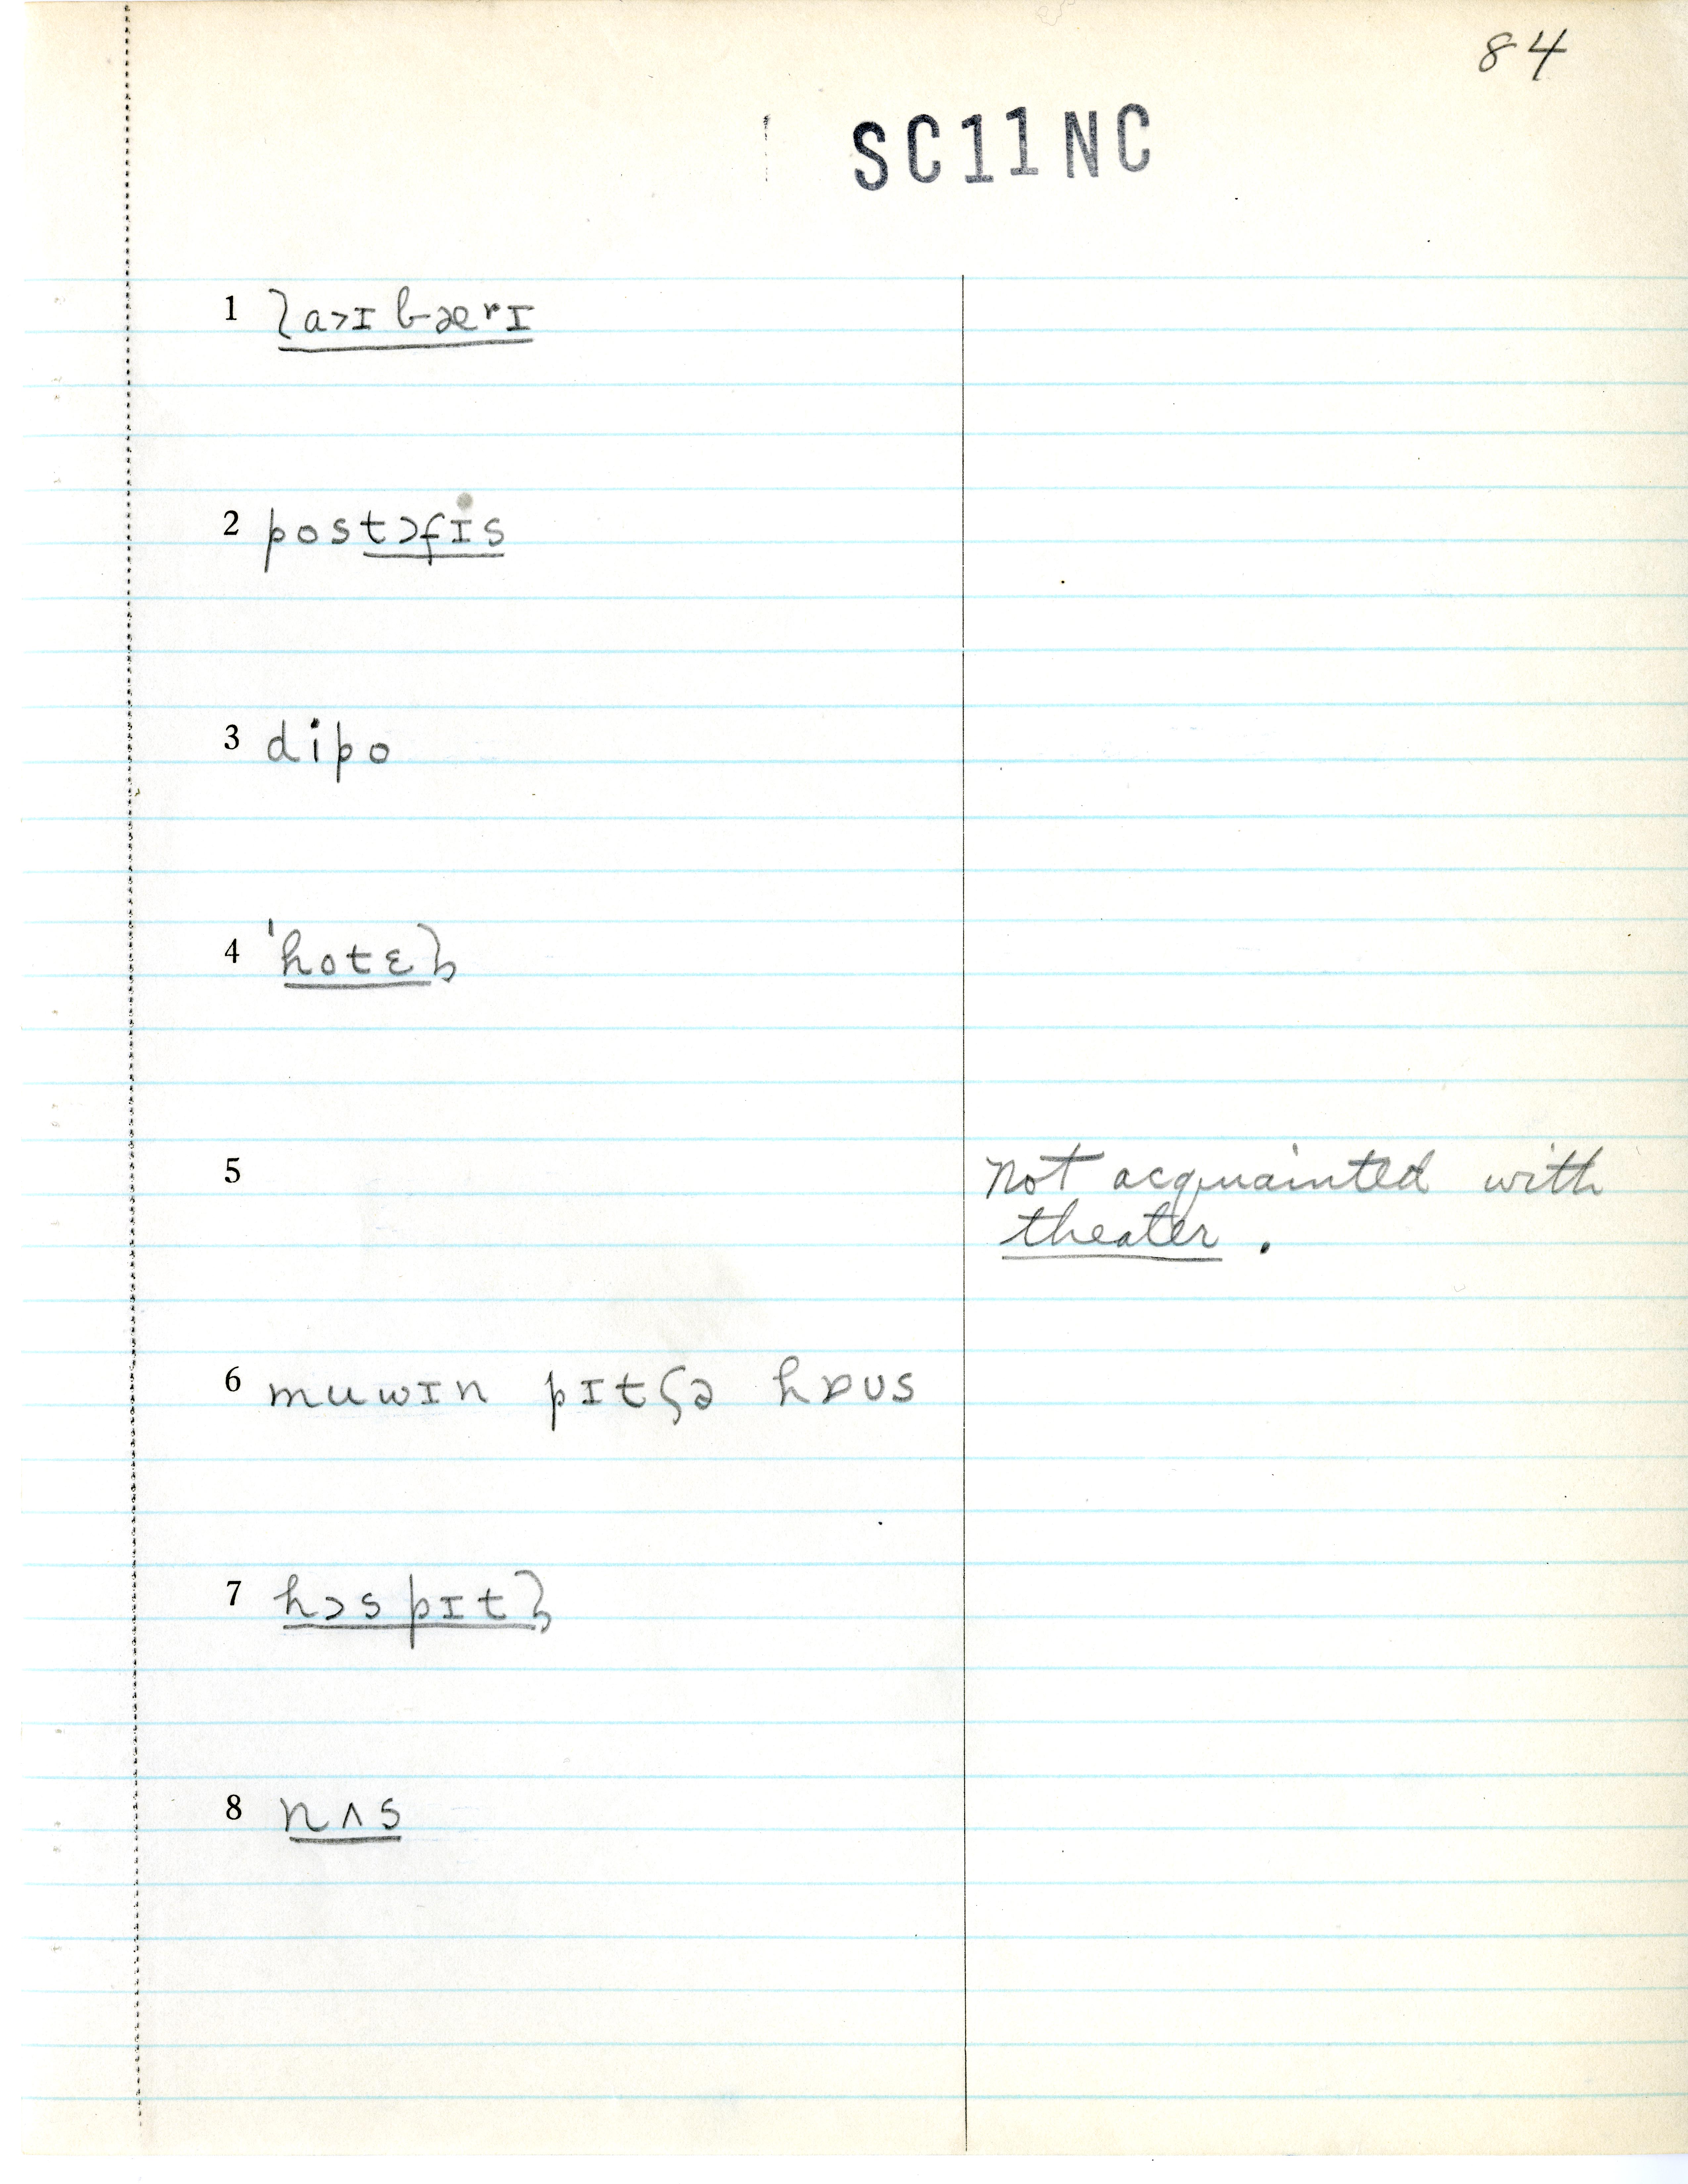 84
SC11NC
1 la˃ɪbærɪ
2 postɔfɪs
3 dipo
4 ˈhotɛɫ
5 Not acquainted with
theater.
6 muwɪn pɪtʃə hɒʊs
7 hɔspɪtɫ
8 nʌs